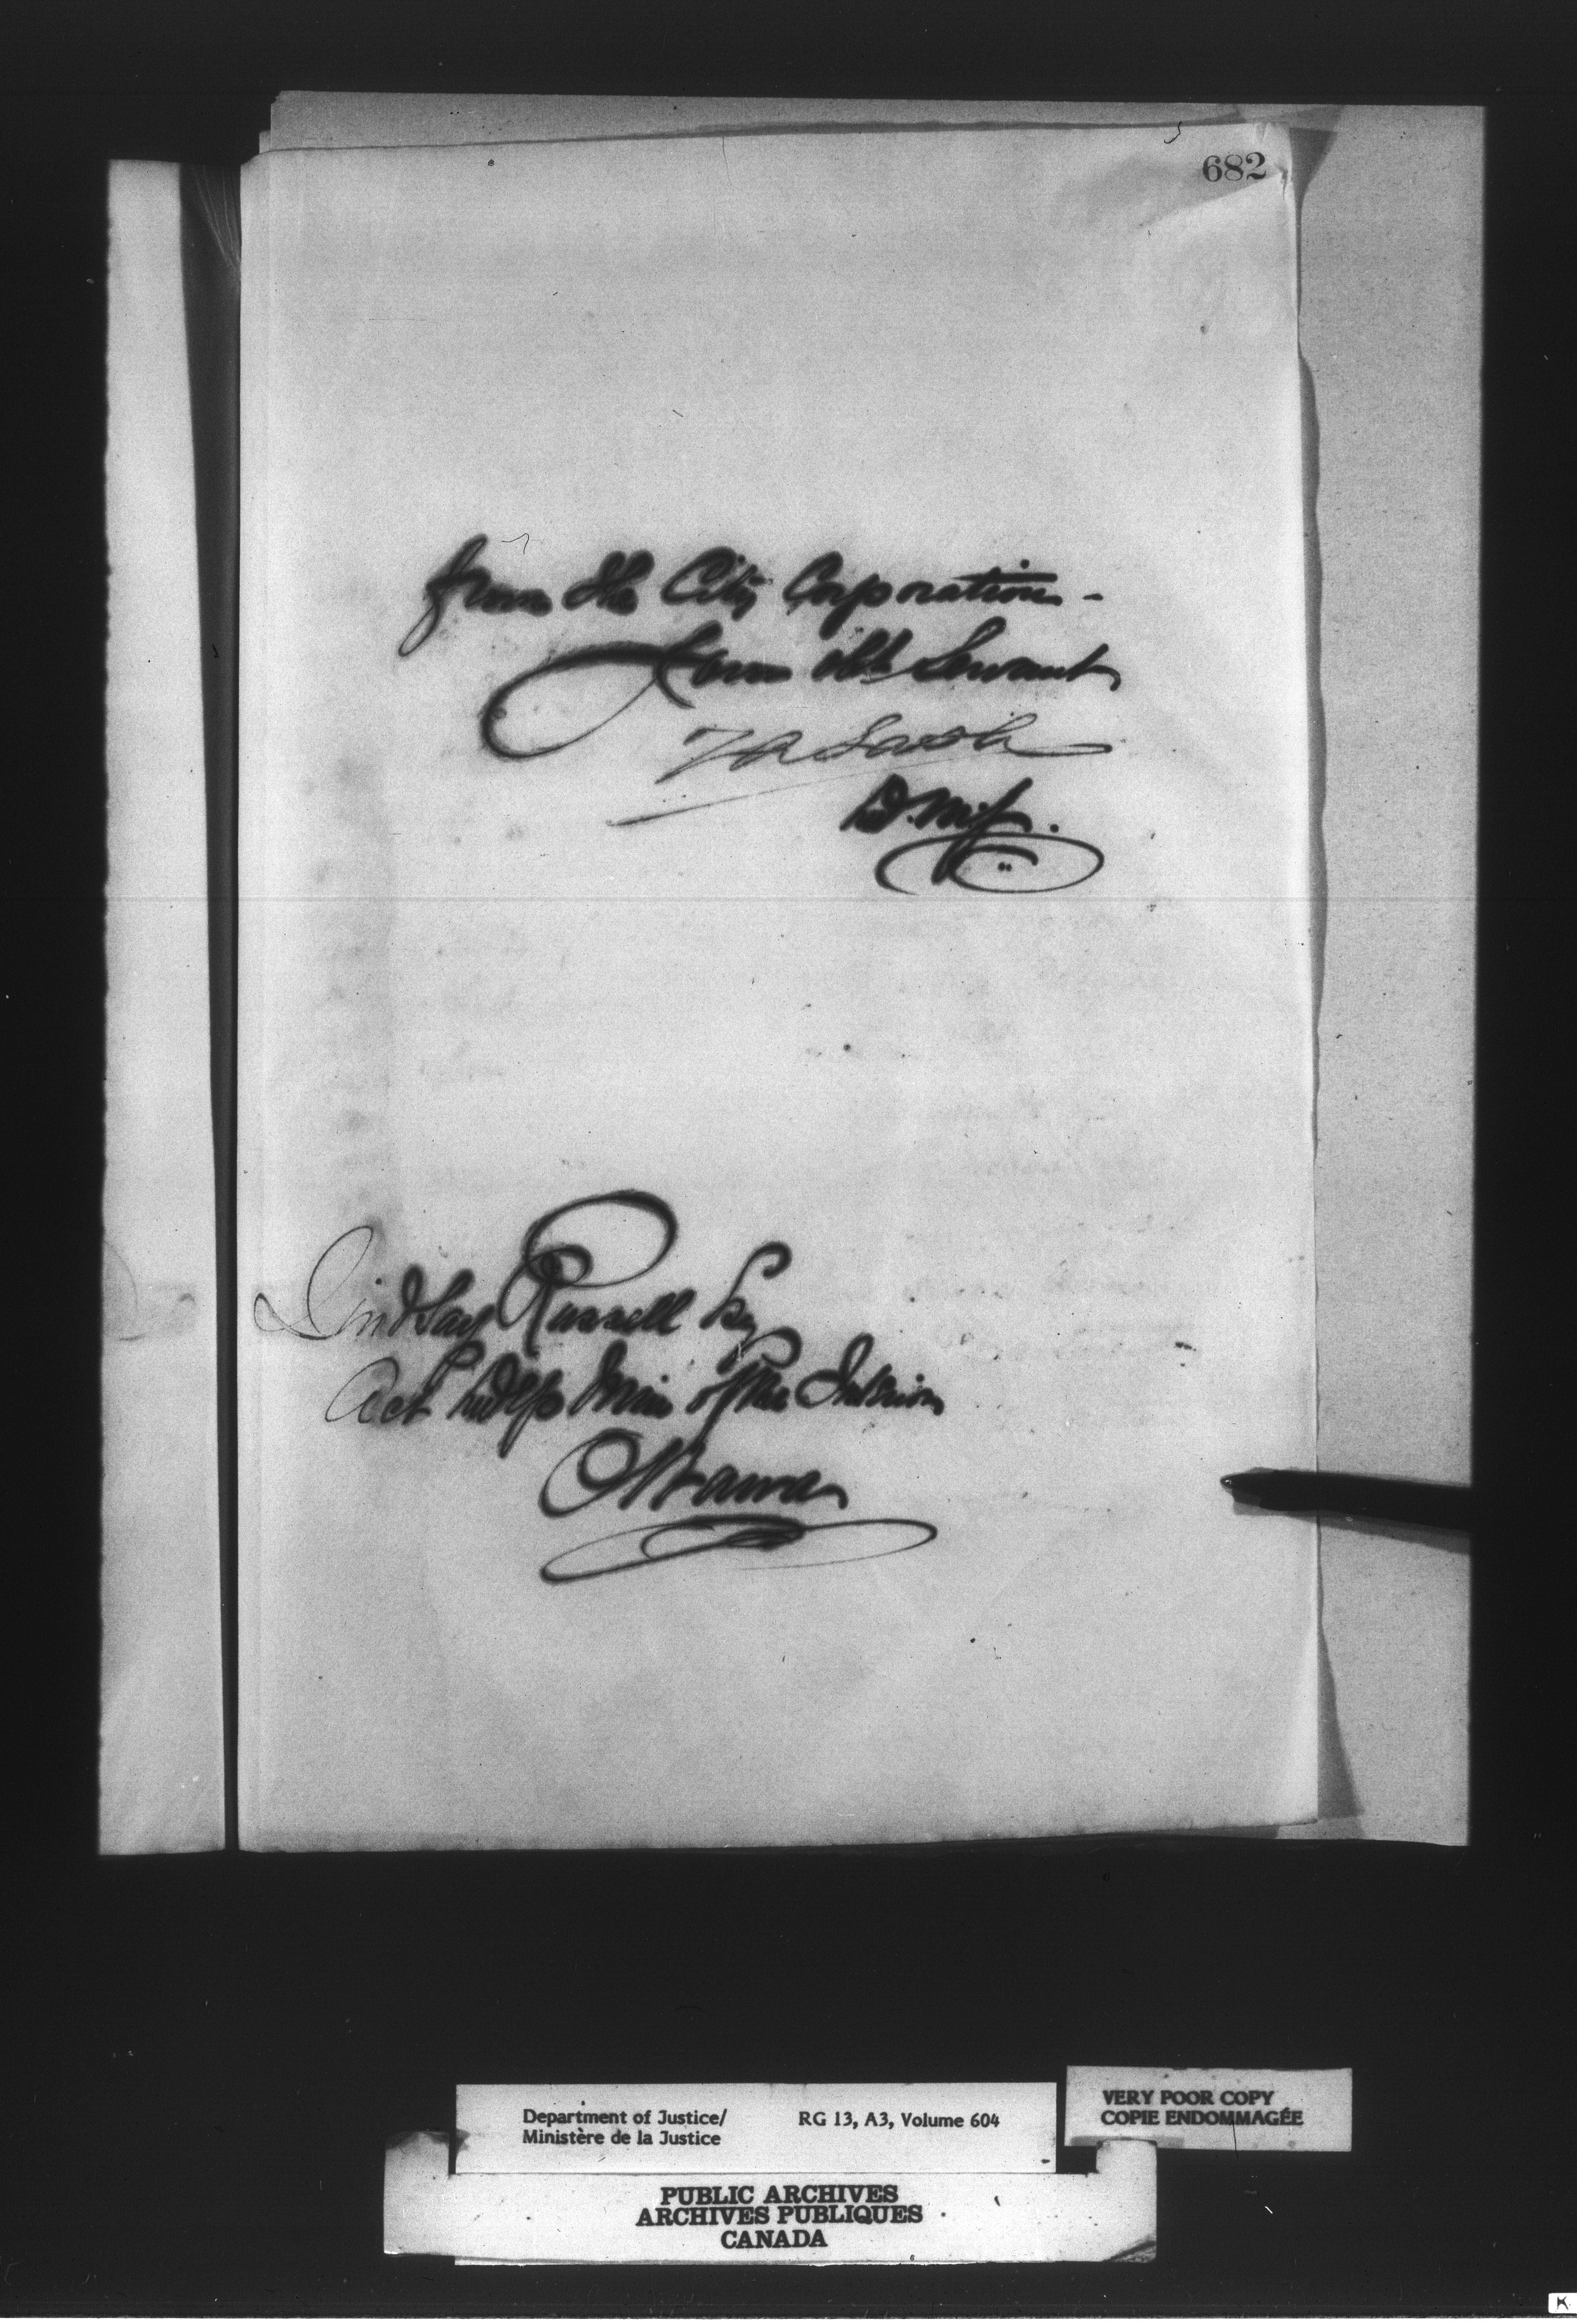 682
from the City Corporation -
Your obt Servant
Z A Lash
D. M. J.
Lindsay Russell Esq
Act Dep Min of the Interior
Ottawa
Department of Justice/
Ministère de la Justice
RG 13, A3, Volume 604
VERY POOR COPY
COPIE ENDOMMAGÉE
PUBLIC ARCHIVES
ARCHIVES PUBLIQUES
CANADA
K